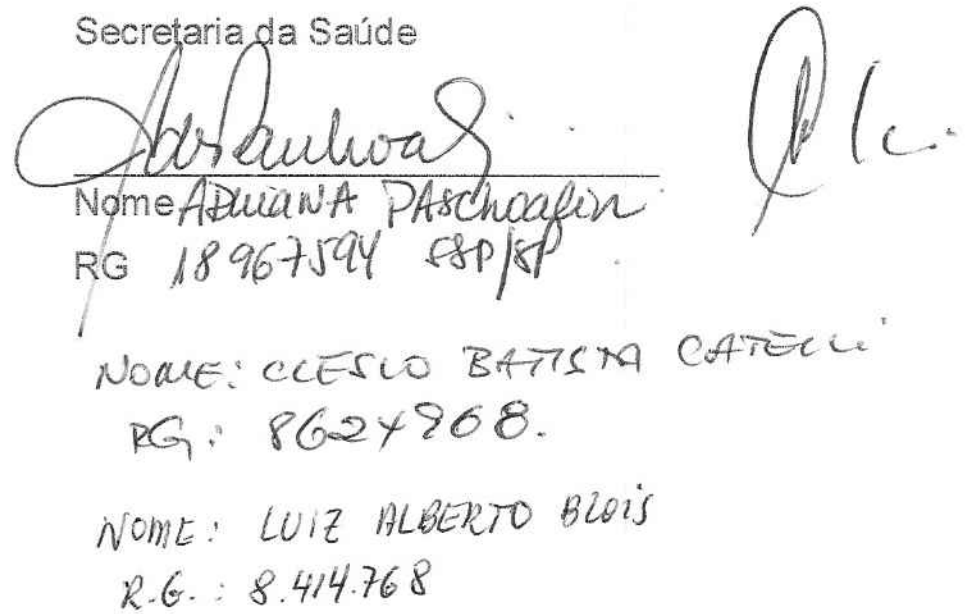 Secretaria da Saúde
Nome ADRIANA PASchoalin
RG 18967594 SSP/SP
NOME: CLESIO BATISTA CATELLI
RG:
NOME: LUIZ ALBERTO BLOIS
R.G.: 8.414.768